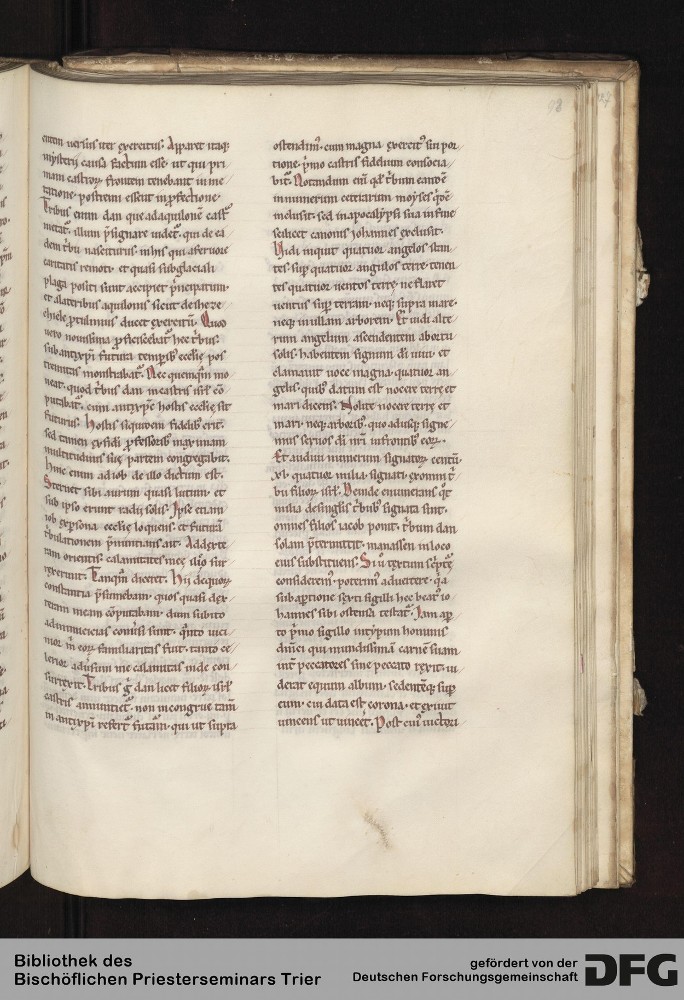 98
eutem uersus iter exercitus. Apparet itaq;
mysterii causa factum esse. ut qui pri
mam castroꝝ frontem tenebant in me
tatione. postremi essent in ꝓfectione.
Tribus enim dan que ad aquilonē cast̃
metat᷑. illum p̃signare uidet᷑. qui de ea
dem t̾bu nasciturus. in his qui a feruore
caritatis remoti. et quasi sub glaciali
plaga positi sunt accipiet p̾ncipatum.
et a lateribus aquilonis sicut de iheze
chiele ꝓtulimus ducet exercitū. Quod
uero nouissima ꝓficiscebat᷑ hec t̾bus.
sub antixp̄i futura temporib; ecclīę pos
tremitas monstrabat᷑. Nec quemquā mo
ueat. quod t̾bus dan in castris isrl̄ cō
putabat᷑. cum antixp̄c hostis ecclīę sit
futurus. Hostis siquidem fidelib; erit.
sed tamen ex fidei ꝓfessorib; maximam
multitudinis suę partem congregabit.
Hinc enim ad iob de illo dictum est.
Sternet sibi aurum quasi lutum. et
sub ipso erunt radii solis. Ipse etiam
iob ex persona ecclīę loquens. et futurā
t̾bulationem p̃nuntians ait. Ad dexte
ram orientis. calamitates meę ilico sur
rexerunt. Tanquā diceret. Hii de quoꝝ
constantia p̃sumebam. quos quasi dex
teram meam cōputabam. dum subito
ad inimicicias cōmisi sunt. quto uici
nior m̄ eoꝝ familiaritas fuit. tanto ce
lerior aduersum me calamitas inde con
surrexit. Tribus g̊ dan licet filioꝝ isrl̄
castris annumeret᷑. non incongrue tam̄
in antixp̄i refert᷑ futam̄. qui ut supra
ostendim᷒. cum magna exercit᷒ sui por
tione. p̾mo castris fidelium consocia
bit᷑. Notandum eni qd̓ t̾bum eandē
in numerum cetrarium moyses q̓dē
inclusit. sed in apocalypsi sua in fine
scilicet canonis iohannes exclusit.
Vidi inquit quatuor angelos stan
tes. sup̱ quatuor angulos terrę. tenen
tes quatuor uentos terrę. ne flaret
uentus sup̱ terram. neq; supra mare.
neq; in ullam arborem. Et uidi alte
rum angelum ascendentem ab ortu
solis. habentem signum dī uiui. et
clamauit uoce magna. quatuor an
gelis. quib; datum est nocere terrę et
mari dicens. Nolite nocere terrę et
mari. neq; arborib;. quo adusq; signe
mus seruos dī nr̄i in frontib; eoꝝ.
Et audiui numerum signatoꝝ. centū.
xl. quatuor milia. signati. ex omni t̾
bu filioꝝ isrl̄. Deinde enumerans q̊t
milia de singlis t̾bub; signata sint.
omnes filios iacob ponit. t̾bum dan
solam p̃termittit. manassen in loco
eius substituens. Si u textum scpt̄ę
considerem᷒. poterim᷒ aduertere. q̓a
sub aptione sexti sigilli hec beat᷒ io
hannes sibi ostensa testat᷑. Iam ap̱
to p̾mo sigillo in typum hominis
dn̄ici qui mundissimā carnē suam
int̄ peccatores sine peccato rexit. ui
derat equum album. sedentēq; sup̱
eum. cui data est corona. et exiuit
uincens ut uincet᷑. Post cui᷒ uictori
Bibliothek des
Bischöflichen Priesterseminars Trier
gefördert von der
Deutschen Forschungsgemeinschaft
DFG